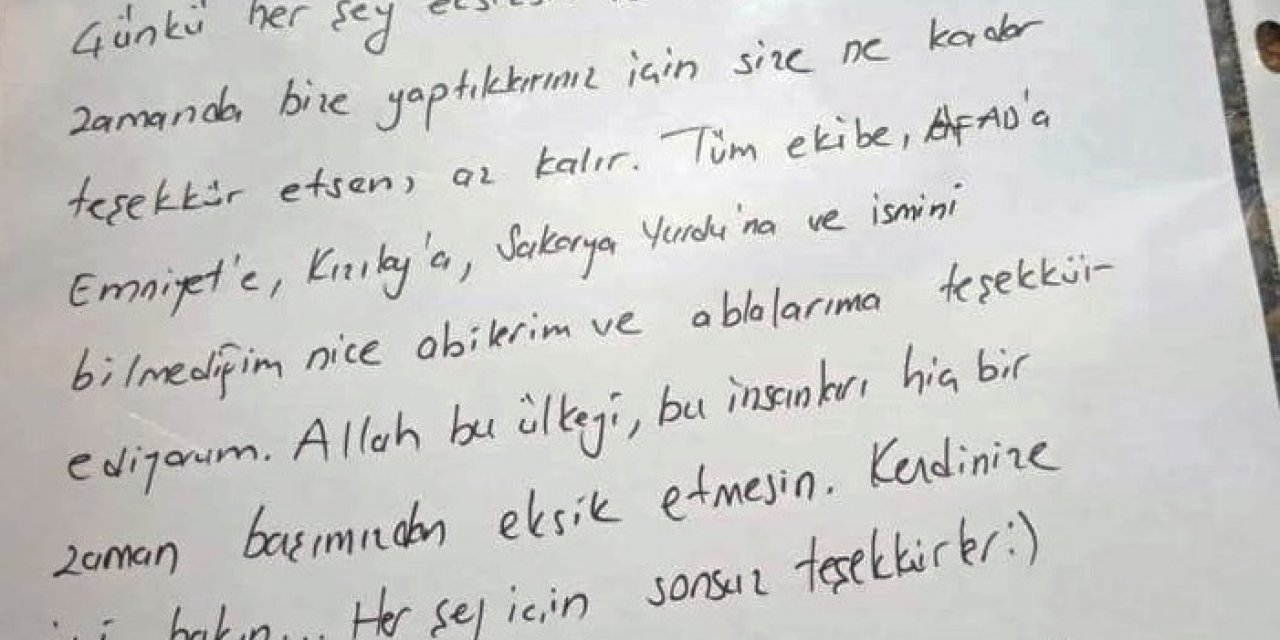 Günkü her şey
zamanda bize yaptıklarınız için size ne kadar
teşekkür etsem, az kalır. Tüm ekibe, AFAD'a
Emniyet'e, Kızılay'a, Sakarya Yurdu'na ve ismini
bilmediğim nice abilerim ve ablalarıma teşekkür
ediyorum. Allah bu ülkeyi, bu insanları hiç bir
zaman başımızdan eksik etmesin. Kendinize
iyi bakın... Her şey için sonsuz teşekkürler:)